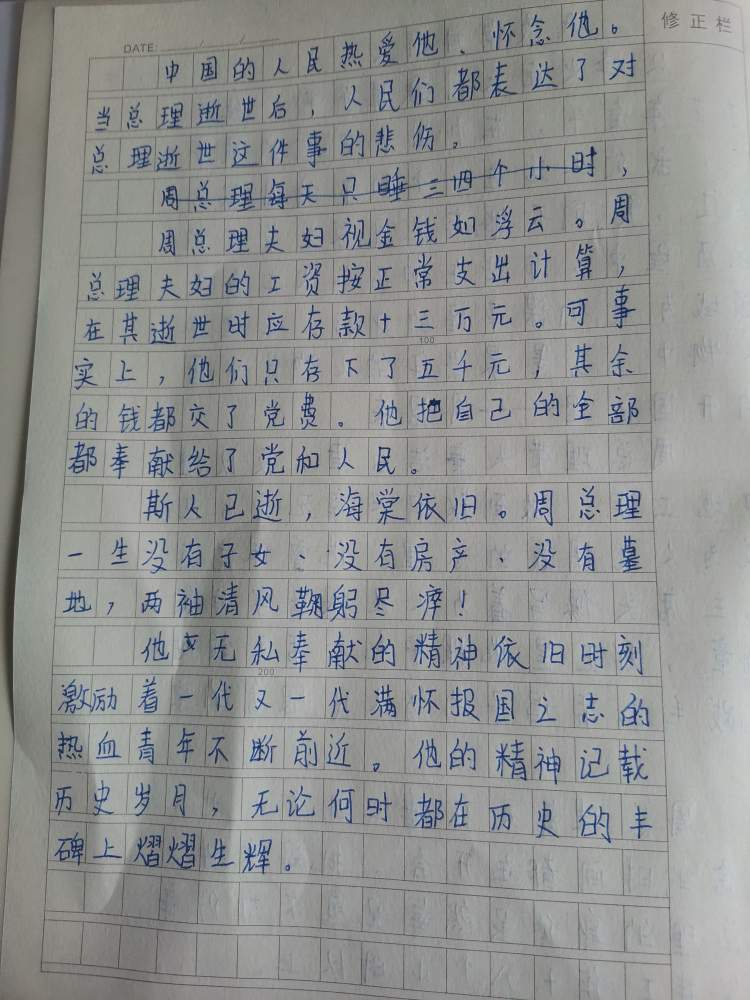 修正栏
DATE: / /
中国的人民热爱他、怀念他。
当总理逝世后，人民们都表达了对
总理逝世这件事的悲伤。
周总理每天只睡三四个小时，
周总理夫妇视金钱如浮云。周
总理夫妇的工资按正常支出计算，
在其逝世时应存款十三万元。可事
100
实上，他们只存下了五千元，其余
的钱都交了党费。他把自己的全部
都奉献给了党和人民。
斯人已逝，海棠依旧。周总理
一生没有子女、没有房产、没有墓
地，两袖清风鞠躬尽瘁！
他无私奉献的精神依旧时刻
200
激励着一代又一代满怀报国之志的
热血青年不断前近。他的精神记载
历史岁月，无论何时都在历史的丰
碑上熠熠生辉。